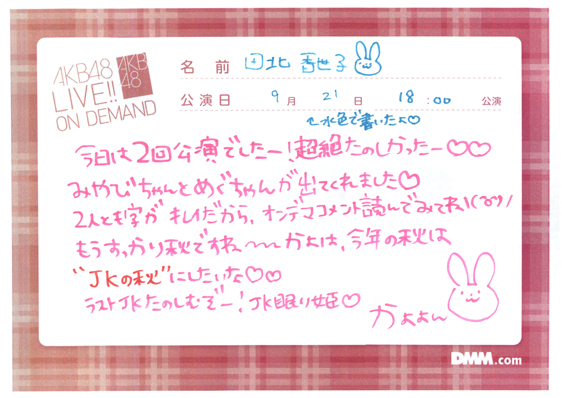 AKB48
LIVE!!
ON DEMAND
AKB
48
名前 田北香世子
公演日 9月21日 18:00公演
↑水色で書いたよ♡
今日は2回公演でしたー!超絶たのしかったー♡♡
みやびちゃんとめぐちゃんが出てくれました♡
2人とも字がキレイだから、オンデマコメント読んでみてね
もうすっかり秋ですね〜〜かよは、今年の秋は
"JKの秋"にしたいな♡♡
ラストJKたのしむぞー!JK眠り姫♡
かよよん
DMM.com